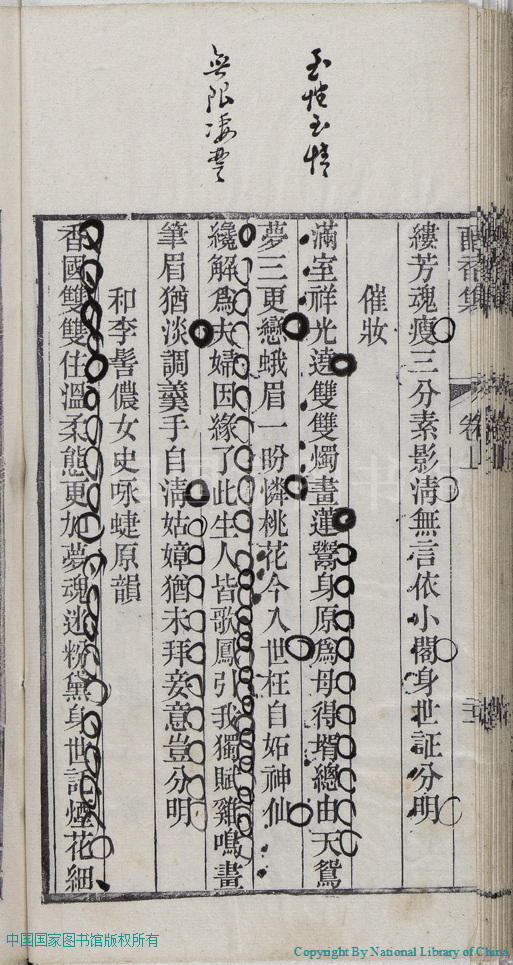 至性至情
無限凄楚
香集 卷上
縷芳魂瘦三分素影淸無言依小閣身世証分明
催妝
滿室祥光遶雙雙燭畫蓮鸞身原爲母得壻總由天鴛
夢三更戀蛾眉一盼憐桃花今入世枉自妬神仙
纔解爲夫婦因緣了此生人皆歌鳳引我獨賦雞鳴畫
筆眉猶淡調羹手自淸姑嫜猶未拜妾意豈分明
和李髻儂女史咏蜨原韻
香國雙雙住溫柔態更加夢魂迷粉黛身世託煙花細
中国国家图书馆版权所有
Copyright By National Library of China